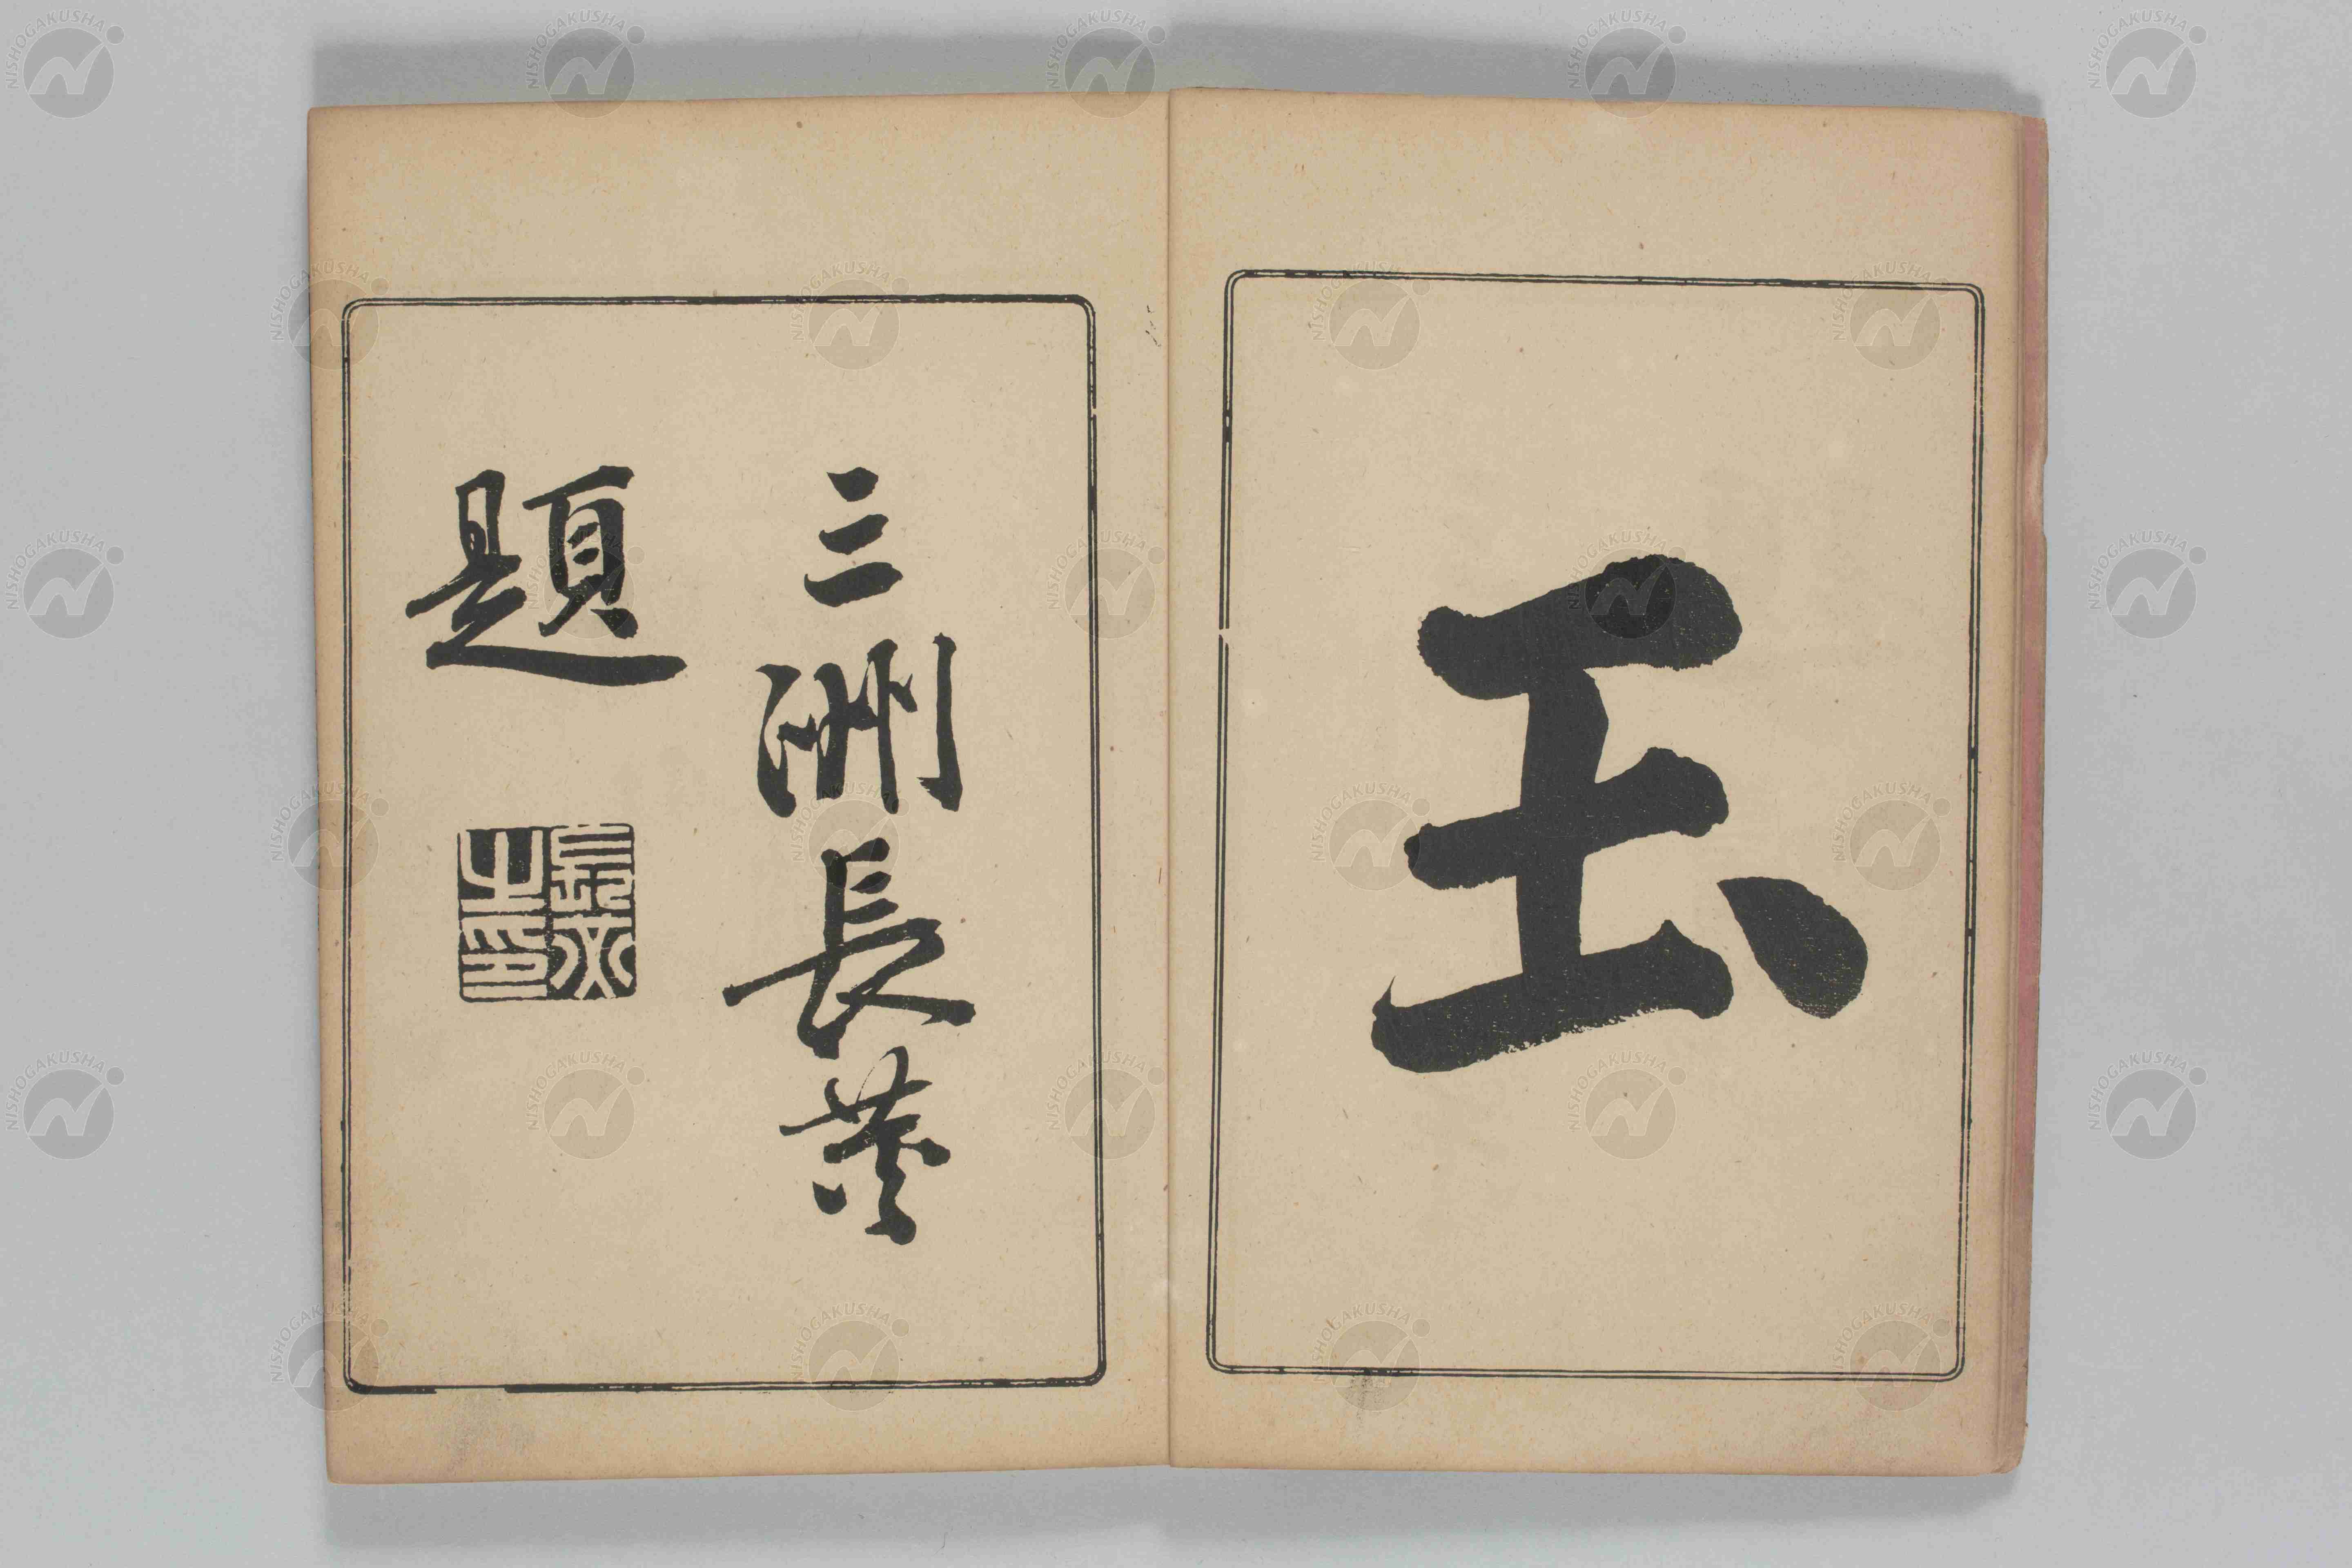 玉
三洲長炗
題
長炗之印
NISHOGAKUSHA